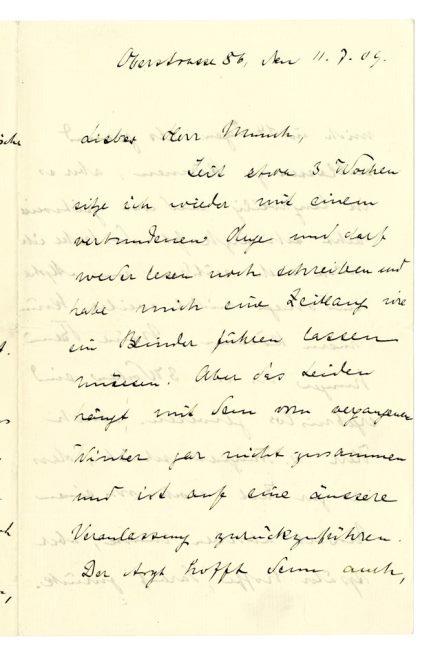 Oberstrasse 56, den 11. 7. 09.
Lieber Herr Munch,
Seit etwa 3 Wochen
sitze ich wieder mit einem
verbundenen Auge und darf
weder lesen noch schreiben und
habe mich eine Zeitlang wie
ein Blinder führen lassen
müssen. Aber das Leiden
hängt mit dem vom vergangenen
Winter gar nicht zusammen
und ist auf eine äussere
Veranlassung zurückzuführen.
Der Arzt hofft denn auch,